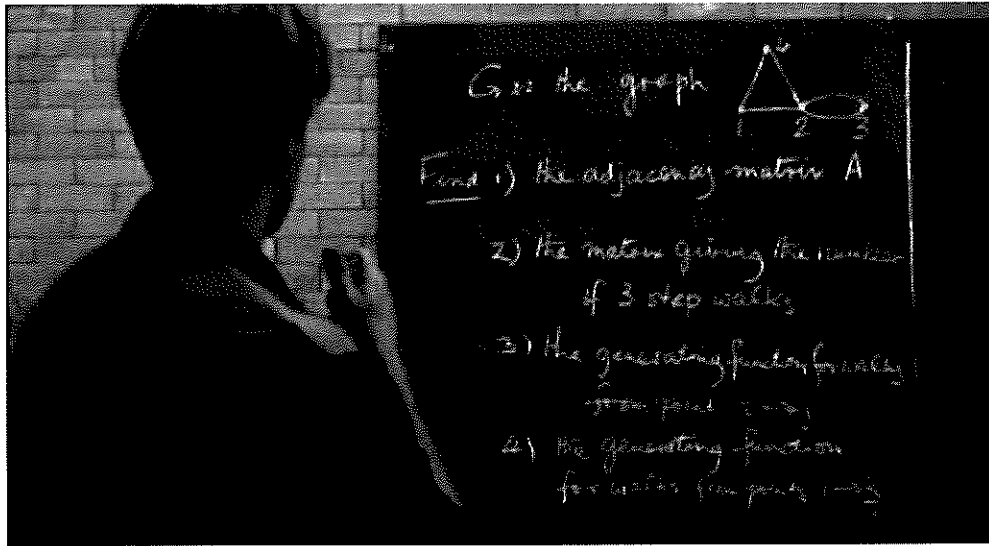 G is the graph
4
1 2 3
Find 1) the adjacency matrix A
2) the matrix giving the number
of 3 step walks
3) the generating function for walks
from point i → j
4) the generating function
for walks from points 1→3